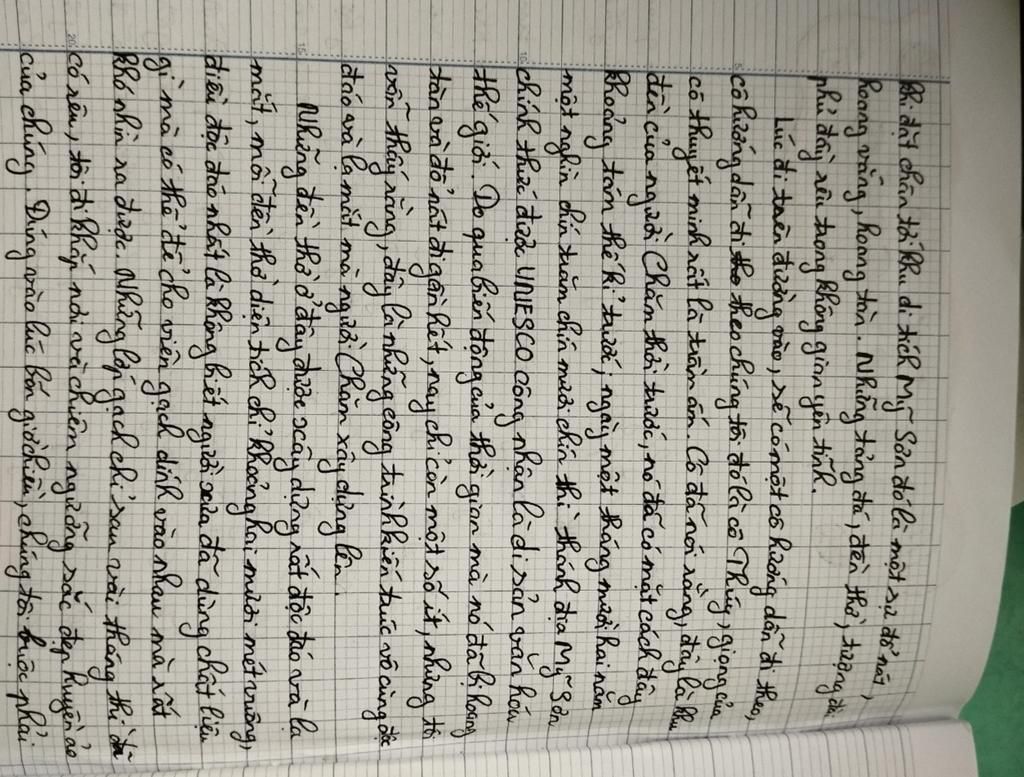 Khi đặt chân tới khu di tích Mỹ Sơn đó là một sự đổ nát,
hoang vắng, hoang tàn. Những tảng đá, đền thờ, tượng đá
phủ đầy rêu trong không gian yên tĩnh.
Lúc đi trên đường vào, sẽ có một cô hướng dẫn đi theo,
cô hướng dẫn đi theo chúng tôi đó là cô Thúy, giọng của
cô thuyết minh rất là trầm ấm. Cô đã nói rằng, đây là khu
đền của người Chăm thời trước, nó đã có mặt cách đây
khoảng tám thế kỉ trước, ngày một tháng mười hai năm
một nghìn chín trăm chín mươi chín thì thánh địa Mỹ Sơn
chính thức được UNESCO công nhận là di sản văn hóa
thế giới. Do qua biến động của thời gian mà nó đã bị hoang
tàn và đổ nát đi gần hết, nay chỉ còn một số ít, nhưng tôi
vẫn thấy rằng, đây là những công trình kiến trúc vô cùng độc
đáo và lạ mắt mà người Chăm xây dựng lên.
Những đền thờ ở đây được xây dựng rất độc đáo và lạ
mắt, mỗi đền thờ diện tích chỉ khoảng hai mươi mét vuông,
điều độc đáo nhất là không biết người xưa đã dùng chất liệu
gì mà có thể để cho viên gạch dính vào nhau mà rất
khó nhìn ra được. Những lớp gạch chỉ sau vài tháng thì đã
có rêu, tôi đi khắp nơi và chiêm ngưỡng sắc đẹp huyền ảo
của chúng. Đúng vào lúc bốn giờ chiều, chúng tôi buộc phải